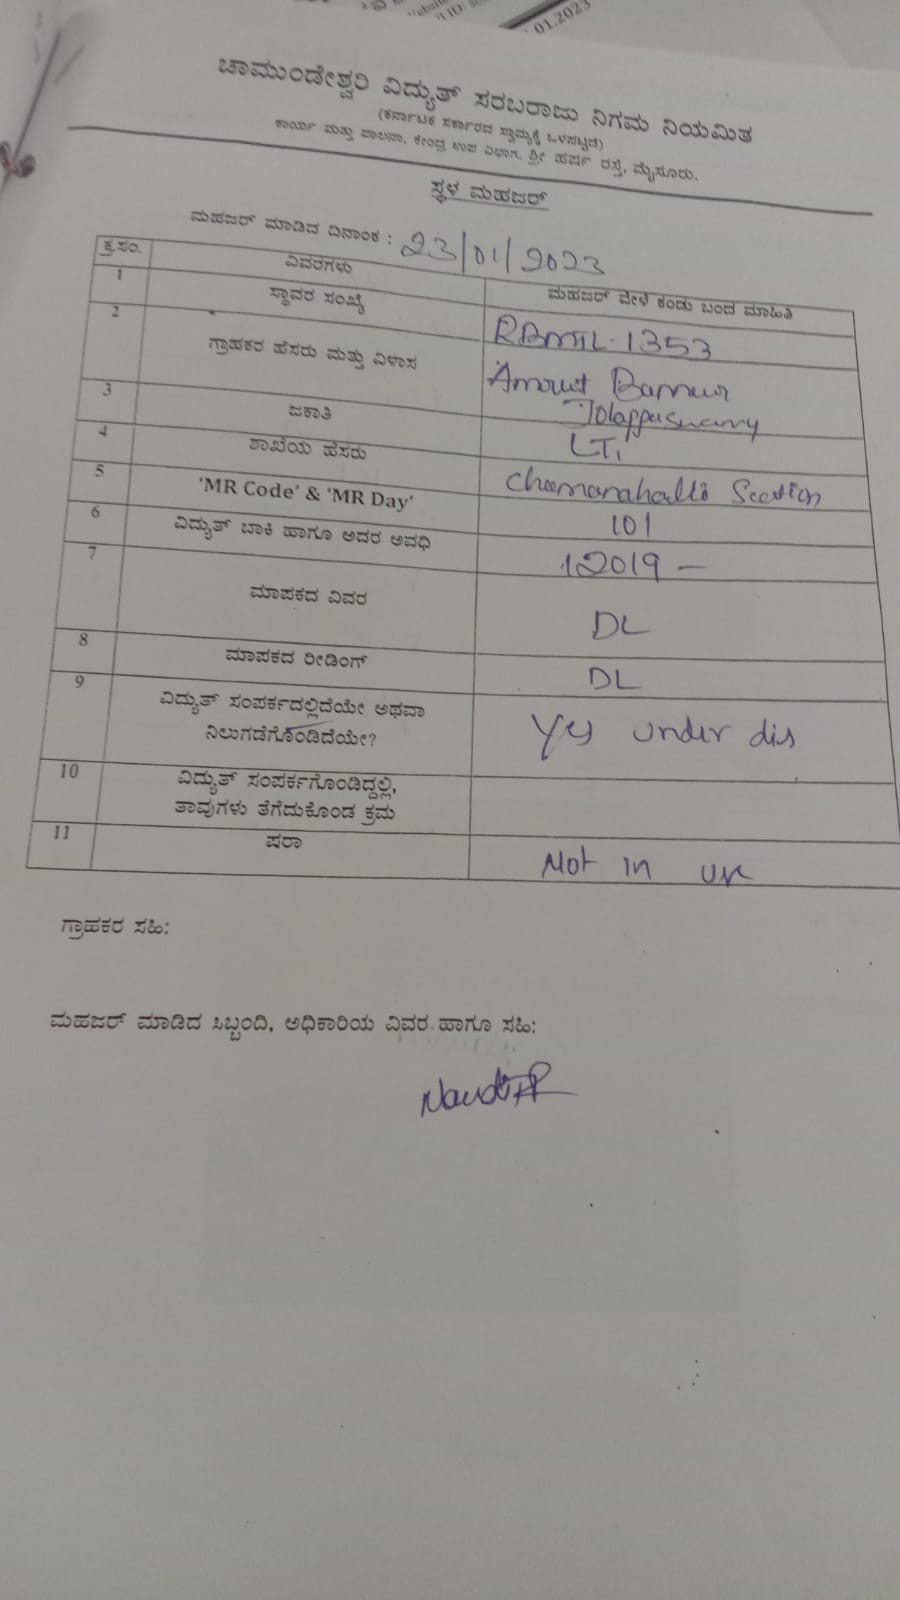 01.2023
ಚಾಮುಂಡೇಶ್ವರಿ ವಿದ್ಯುತ್ ಸರಬರಾಜು ನಿಗಮ ನಿಯಮಿತ
(ಕರ್ನಾಟಕ ಸರ್ಕಾರದ ಸ್ವಾಮ್ಯಕ್ಕೆ ಒಳಪಟ್ಟಿದೆ)
ಕಾರ್ಯ ಮತ್ತು ಪಾಲನಾ, ಕೇಂದ್ರ ಉಪ ವಿಭಾಗ, ಶ್ರೀ ಹರ್ಷ ರಸ್ತೆ, ಮೈಸೂರು.
ಸ್ಥಳ ಮಹಜರ್
ಮಹಜರ್ ಮಾಡಿದ ದಿನಾಂಕ : 23/01/2023
ಕ್ರ.ಸಂ. ವಿವರಗಳು ಮಹಜರ್ ವೇಳೆ ಕಂಡು ಬಂದ ಮಾಹಿತಿ
1 ಸ್ಥಾವರ ಸಂಖ್ಯೆ 1353
2 ಗ್ರಾಹಕರ ಹೆಸರು ಮತ್ತು ವಿಳಾಸ
3 ಜಕಾತಿ LT1
4 ಶಾಖೆಯ ಹೆಸರು Section
5 'MR Code' & 'MR Day' 101
6 ವಿದ್ಯುತ್ ಬಾಕಿ ಹಾಗೂ ಅದರ ಅವಧಿ 12019 –
7 ಮಾಪಕದ ವಿವರ DL
8 ಮಾಪಕದ ರೀಡಿಂಗ್ DL
9 ವಿದ್ಯುತ್ ಸಂಪರ್ಕದಲ್ಲಿದೆಯೇ ಅಥವಾ
ನಿಲುಗಡೆಗೊಂಡಿದೆಯೇ? Yes under dis
10 ವಿದ್ಯುತ್ ಸಂಪರ್ಕಗೊಂಡಿದ್ದಲ್ಲಿ,
ತಾವುಗಳು ತೆಗೆದುಕೊಂಡ ಕ್ರಮ
11 ಷರಾ Not in use
ಗ್ರಾಹಕರ ಸಹಿ:
ಮಹಜರ್ ಮಾಡಿದ ಸಿಬ್ಬಂದಿ, ಅಧಿಕಾರಿಯ ವಿವರ ಹಾಗೂ ಸಹಿ: